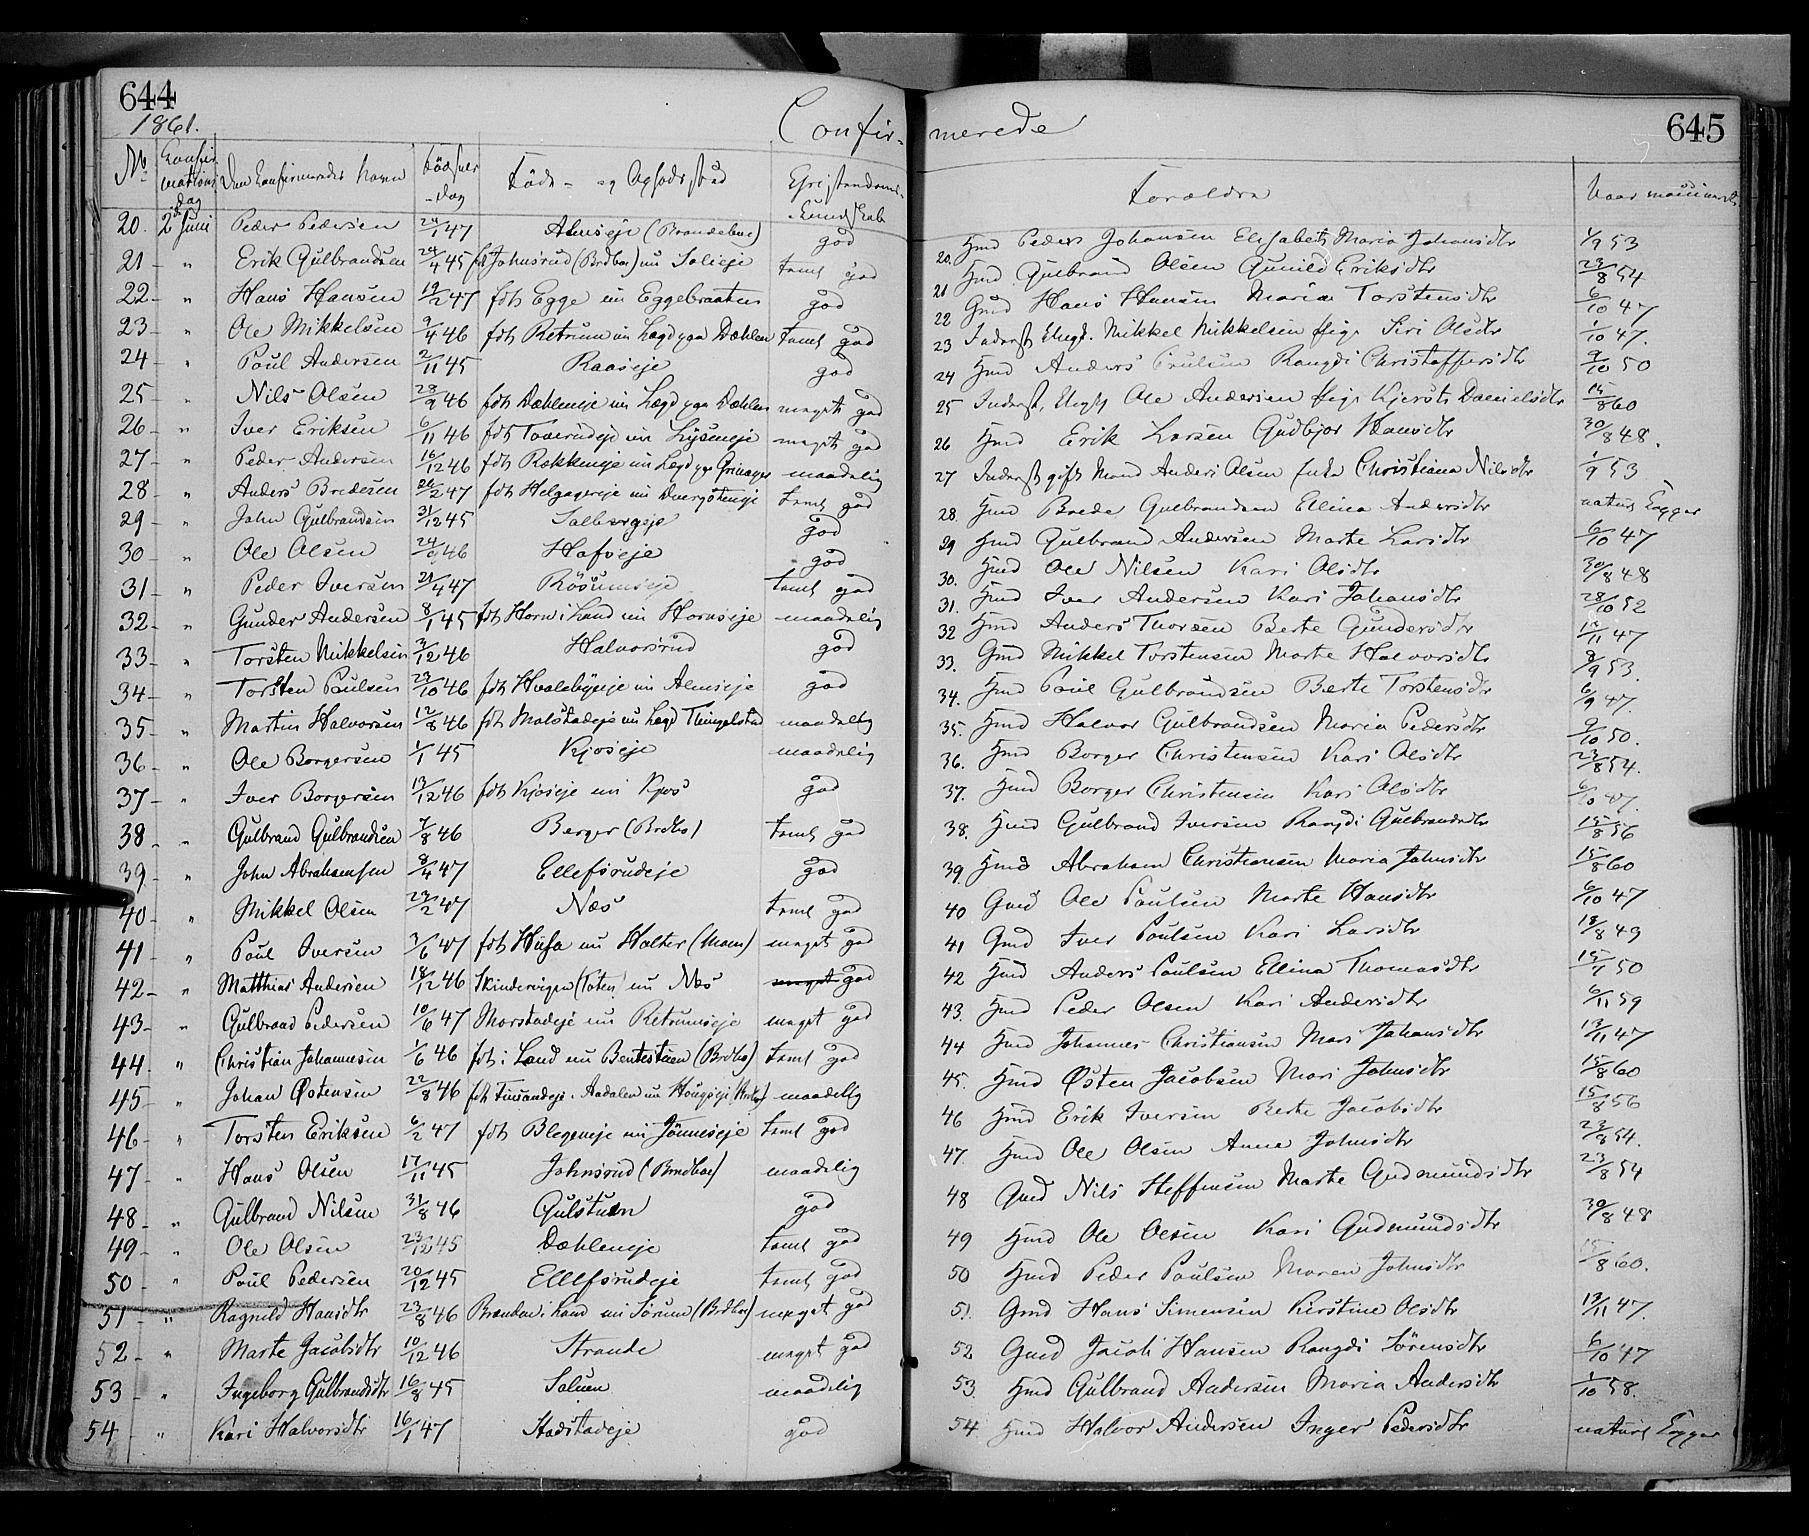 644
1861.
Confir-
No Confirmations Dag Den Confirmeredes Navn Fødsels-Dag Føde- og Opfødested Christendoms-Kundskab
20. 2 Juni Peder Pedersen 24/1 47 Almseje (Brandebu) god
21 - " Erik Gulbrandsen 24/4 45 fdt Johnsrud (Brdbu) nu Solieje temt god
22 - " Hans Hansen 19/2 47 fdt Egge nu Eggebraaten god
23 - " Ole Mikkelsen 9/4 46 fdt Retrum nu Lægd paa Dæhlen temt god
24 - " Poul Andersen 2/11 45 Raaseje god
25 - " Nils Olsen 28/9 46 fdt Dæhleneje nu Lægd paa Dæhlen meget god
26 - " Iver Eriksen 6/11 46 fdt Toverudeje nu Lysmeje meget god
27 - " Peder Andersen 16/12 46 fdt Rækkeneje nu Lægd paa Grinager maadelig
28 - " Anders Bredesen 26/2 47 fdt Helgagereje nu Dvergsteneje temt god
29 - " John Gulbrandsen 31/12 45 Solbergeje god
30 - " Ole Olsen 24/9 46 Hofseje god
31 - " Peder Iversen 21/4 47 Røsumseje temt god
32 - " Gunder Andersen 8/1 45 fdt Horn i Land nu Hornseje maadelig
33 - " Torsten Mikkelsen 3/12 46 Halvorsrud god
34 - " Torsten Poulsen 23/10 46 fdt Hvalebyeje nu Almseje god
35 - " Martin Halvorsen 12/8 46 fdt Molstadeje nu Lægd Thingelstad maadelig
36 - " Ole Borgersen 1/1 45 Kjoseje maadelig
37 - " Iver Borgersen 13/12 46 fdt Kjoseje nu Kjos god
38 - " Gulbrand Gulbrandsen 7/8 46 Berger (Brdbu) temt god
39 - " John Abrahamsen 8/4 47 Ellefsrudeje god
40 - " Mikkel Olsen 23/2 47 Næs temt god
41 - " Poul Iversen 3/6 47 fdt Hufa nu Holter (Moen) meget god
42 - " Matthias Andersen 18/12 46 Skindervigen (Toten) nu Næs meget god
43 - " Gulbrand Pedersen 10/6 47 Morstadeje nu Retrumseje meget god
44 - " Christian Johannesen 1/6 46 fdt i Land nu Bentestuen (Brdbu) temt god
45 - " Johan Østensen 22/8 46 fdt Finsandeje i Aadalen nu Hougseje maadelig
46 - " Torsten Eriksen 6/2 47 fdt Blegeneje nu Jønneseje temt god
47 - " Hans Olsen 17/11 45 Johnsrud (Brndbu) maadelig
48 - " Gulbrand Nilsen 31/8 46 Gulstuen god
49 - " Ole Olsen 23/12 45 Dæhleneje temt god
50 - " Poul Pedersen 20/12 45 Ellefsrudeje temt god
51 - " Ragnild Hansdtr 23/8 46 Branden i Land nu Sørum (Brdbu) meget god
52 - " Marte Jacobsdtr 10/12 46 Strande meget god
53 - " Ingeborg Gulbrandsdtr 16/8 45 Soluen maadelig
54 - " Kari Halvorsdtr 16/1 47 Hadstadeje god
645
merede
Forældre Naar vaccineret
20. Hmd Peder Johansen Elisabeth Maria Johansdtr 1/9 53
21 Hmd Gulbrand Olsen Gunild Eriksdtr 23/8 54
22 Gmd Hans Hansen Maria Torstensdtr 6/10 47
23 Inderst Ungk. Mikkel Mikkelsen Pige Siri Olsdtr 1/10 47.
24 Hmd Anders Poulsen Rangdi Christoffersdtr 9/10 50
25 Inderst, Ungk Ole Andersen Pige Kjersti Danielsdtr 15/8 60
26 Hmd Erik Larsen Gudbjør Hansdtr 30/8 48.
27 Inderst gift Mand Anders Olsen Enke Christiana Nilsdtr 1/9 53
28. Hmd Brede Gulbrandsen Ellina Andersdtr naturl Kopper
29 Hmd Gulbrand Andersen Marte Larsdtr 6/10 47
30. Hmd Ole Nilsen Kari Olsdtr 30/8 48
31. Hmd Iver Andersen Kari Johansdtr 28/10 52
32 Hmd Anders Thorsen Berte Gundersdtr 13/11 47
33. Gmd Mikkel Torstensen Marte Halvorsdtr 8/9 53.
34. Hmd Poul Gulbrandsen Berte Torstensdtr 6/9 47.
35. Hmd Halvor Gulbrandsen Maria Pedersdtr 9/10 50.
36. Hmd Borger Christensen Kari Olsdtr 23/8 54.
37. Hmd Borger Christensen Kari Olsdtr 6/10 47.
38. Hmd Gulbrand Iversen Rangdi Gulbrandsdtr 15/8 56
39. Hmd Abraham Christiansen Maria Johnsdtr 15/8 60
40 Gmd Ole Poulsen Marte Hansdtr 6/10 47
41 Gmd Iver Poulsen Kari Larsdtr 18/8 49
42 Hmd Anders Poulsen Ellina Thomasdtr 15/1 50
43. Hmd Peder Olsen Kari Andersdtr 6/11 59
44 Hmd Johannes Christiansen Mari Johansdtr 13/11 47
45. Hmd Østen Jacobsen Mari Johnsdtr 15/8 60
46 Hmd Erik Iversen Berte Jacobsdtr 15/8 56
47. Hmd Ole Olsen Anne Johnsdtr 23/8 54.
48 Gmd Nils Steffensen Marte Gudmundsdtr 23/8 54
49 Hmd Ole Olsen Kari Gudmundsdtr 30/8 48
50 Hmd Peder Poulsen Maren Johnsdtr 15/8 60.
51. Gmd Hans Simensen Kirstine Olsdtr 13/11 47.
52 Gmd Jacob Hansen Rangdi Sørensdtr 6/10 47
53. Hmd Gulbrand Andersen Maria Andersdtr 1/10 58.
54 Hmd Halvor Andersen Inger Pedersdtr naturl Kopper